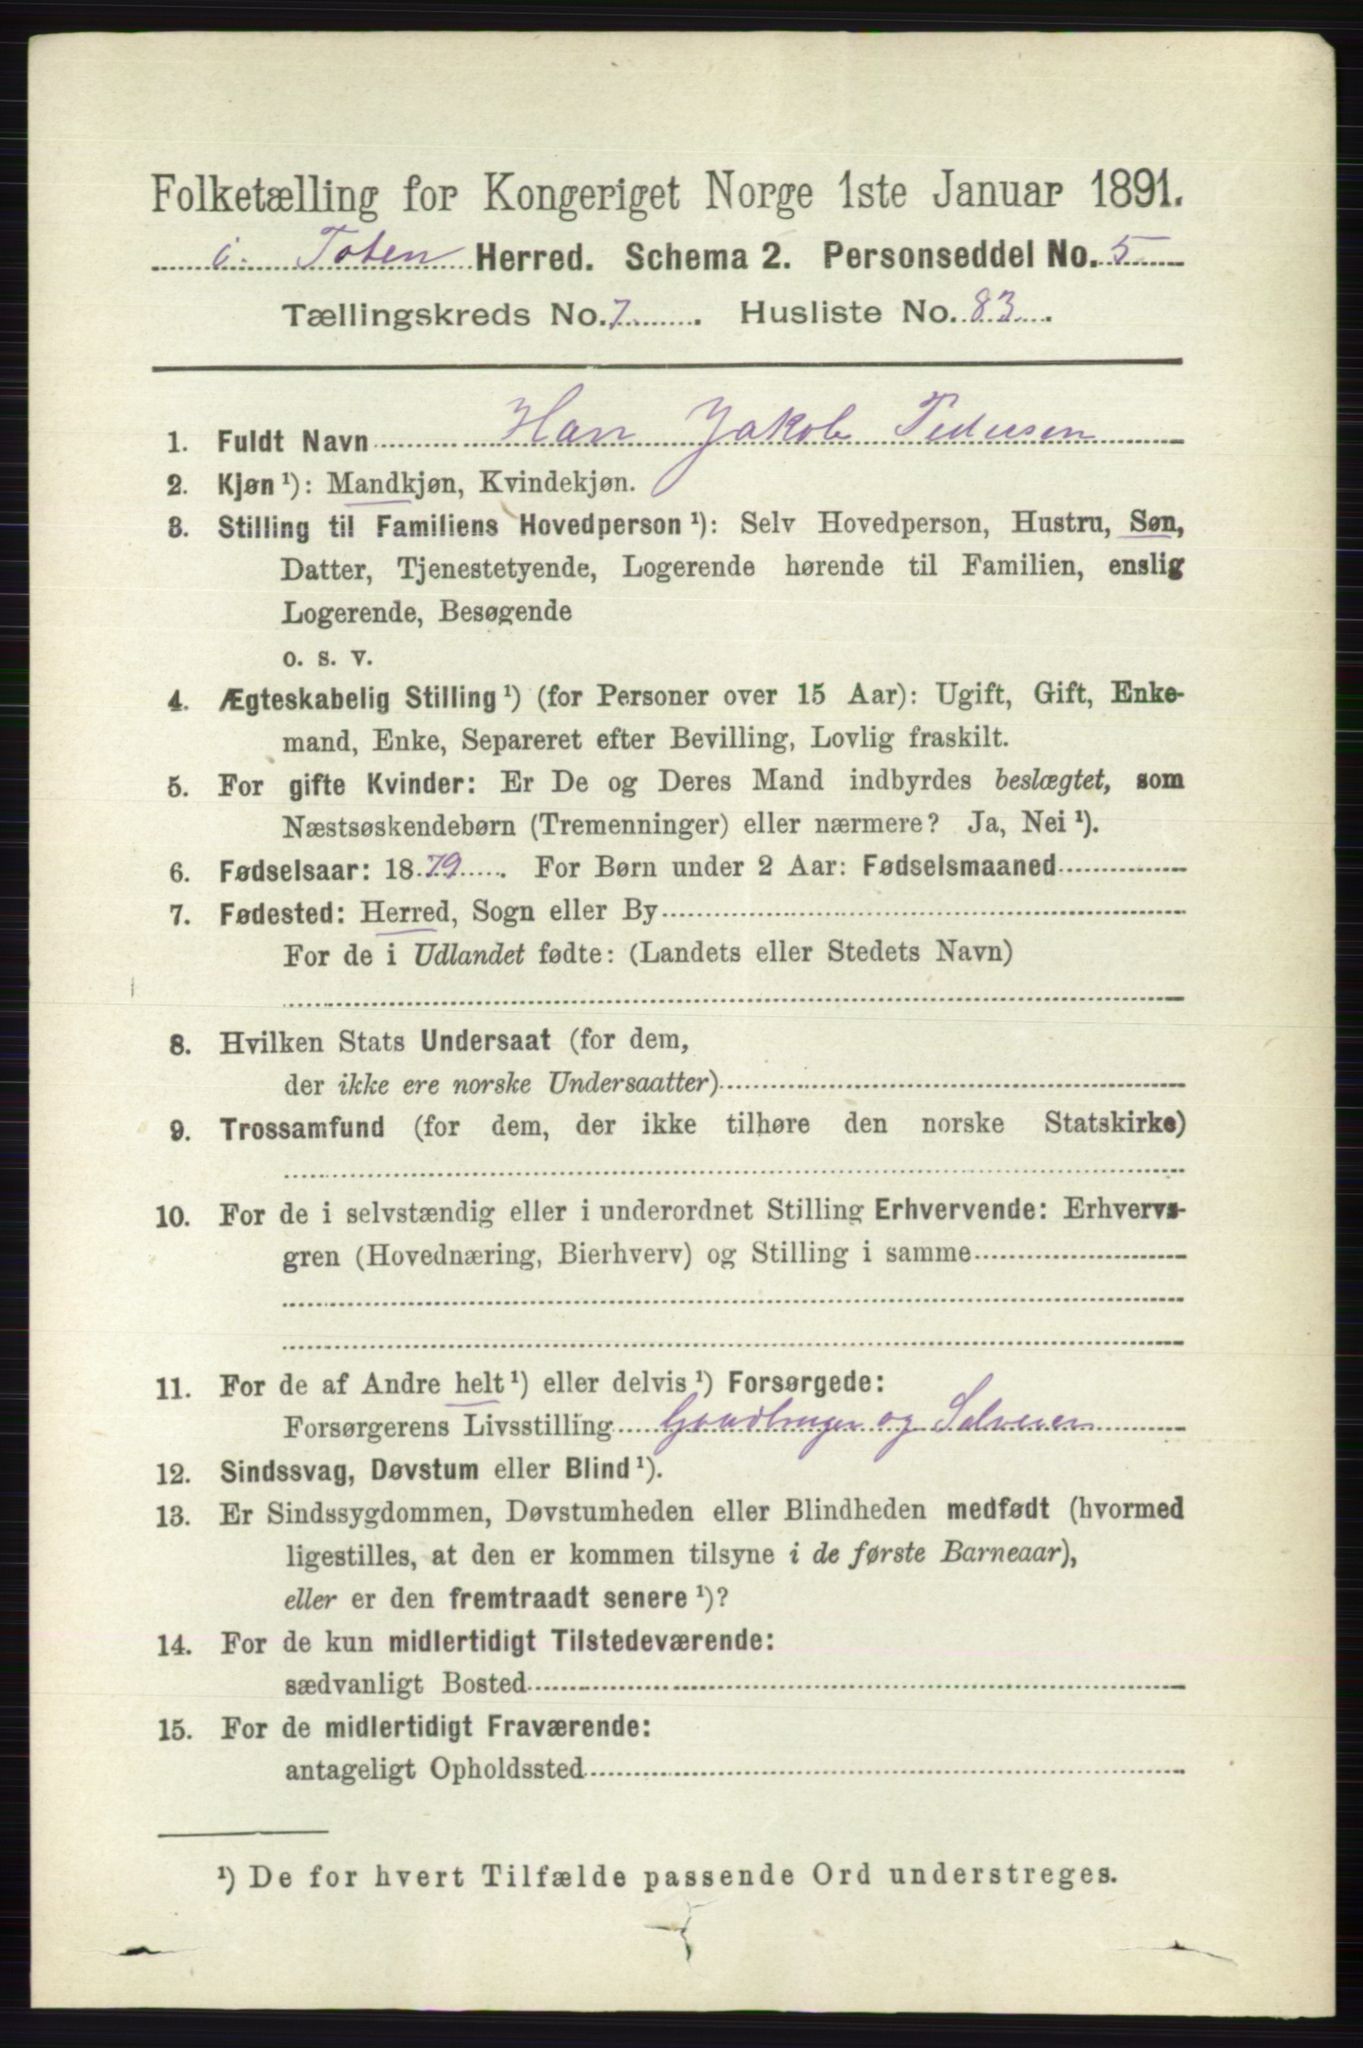 Folketælling for Kongeriget Norge 1ste Januar 1891.
Toten Herred. Schema 2. Personseddel No. 5
Tællingskreds No. 7. Husliste No. 83.
1. Fuldt Navn Han Jakob Pedersen
2. Kjøn ¹): Mandkjøn, Kvindekjøn.
3. Stilling til Familiens Hovedperson ¹): Selv Hovedperson, Hustru, Søn,
Datter, Tjenestetyende, Logerende hørende til Familien, enslig
Logerende, Besøgende
o. s. v.
4. Ægteskabelig Stilling ¹) (for Personer over 15 Aar): Ugift, Gift, Enke-
mand, Enke, Separeret efter Bevilling, Lovlig fraskilt.
5. For gifte Kvinder: Er De og Deres Mand indbyrdes beslægtet, som
Næstsøskendebørn (Tremenninger) eller nærmere? Ja, Nei ¹).
6. Fødselsaar: 1879. For Børn under 2 Aar: Fødselsmaaned
7. Fødested: Herred, Sogn eller By
For de i Udlandet fødte: (Landets eller Stedets Navn)
8. Hvilken Stats Undersaat (for dem,
der ikke ere norske Undersaatter)
9. Trossamfund (for dem, der ikke tilhøre den norske Statskirke)
10. For de i selvstændig eller i underordnet Stilling Erhvervende: Erhvervs-
gren (Hovednæring, Bierhverv) og Stilling i samme
11. For de af Andre helt ¹) eller delvis ¹) Forsørgede:
Forsørgerens Livsstilling Gaardbruger og Selveier
12. Sindssvag, Døvstum eller Blind ¹).
13. Er Sindssygdommen, Døvstumheden eller Blindheden medfødt (hvormed
ligestilles, at den er kommen tilsyne i de første Barneaar),
eller er den fremtraadt senere ¹)?
14. For de kun midlertidigt Tilstedeværende:
sædvanligt Bosted
15. For de midlertidigt Fraværende:
antageligt Opholdssted
¹) De for hvert Tilfælde passende Ord understreges.